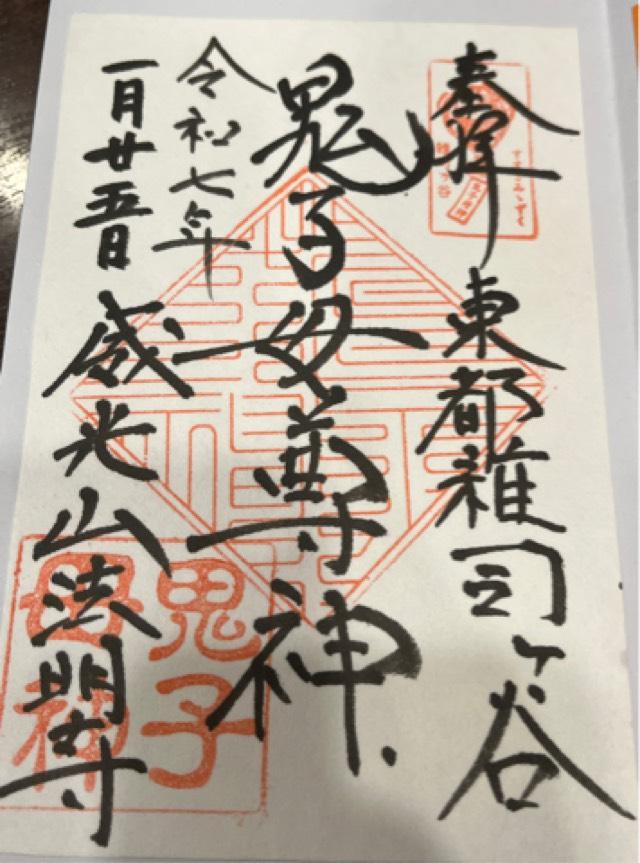 奉拝
東都雑司ヶ谷
鬼子母尊神
令和七年
一月廿五日
威光山法明寺
雑司ヶ谷
すすきみみずく
鬼子
母神